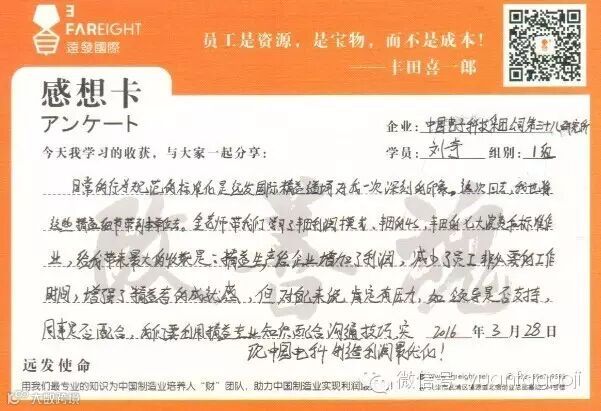 FAREIGHT
遠發國際
员工是资源，是宝物，而不是成本！
——丰田喜一郎
感想卡
アンケート
企业：中国电子科技集团公司第三十八研究所
今天我学习的收获，与大家一起分享：
学员：刘 组别：1组
日常的行为规范的标准化是远发国际精益道场给我一次深刻的印象。这次回去，我也将
这些精益细节带到本单位去。金老师带我们学习了丰田利润模式、丰田的4S、丰田的七大浪费和标准作
业，给我带来最大的收获是：精益生产给企业增加了利润，减少了员工非必要的工作
时间，增强了精益者的成就感，但对于未来 肯定有压力，如 领导是否支持，
同事是否配合，我们要利用精益专业知识配合沟通技巧实 2016 年 3 月 28 日
现中国电科 制造利润最优化！
改善魂
远发使命
用我们最专业的知识为中国制造业培养人“财”团队，助力中国制造业实现利润
微信号
大数跨境